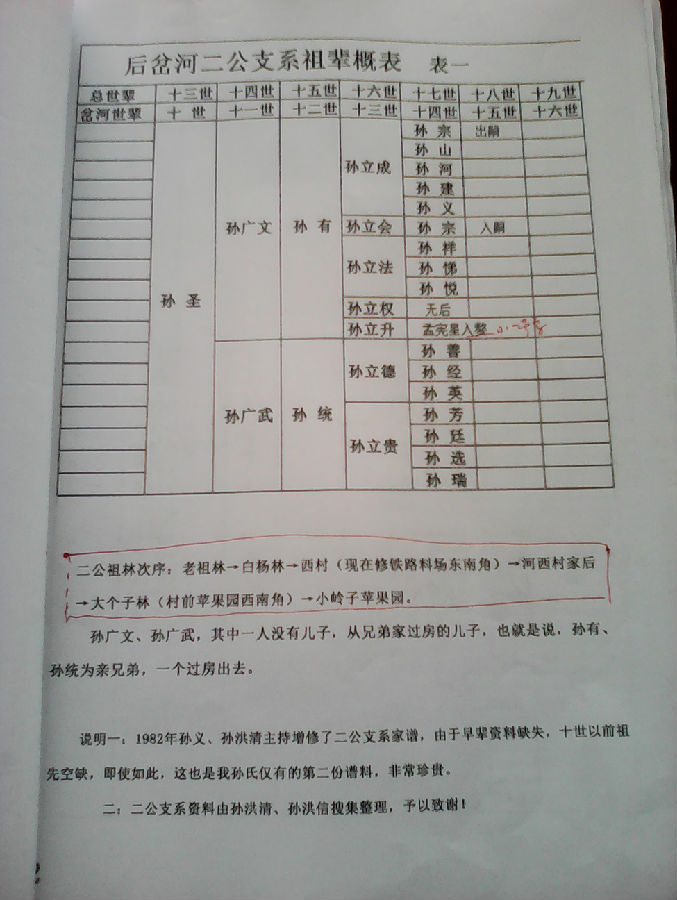 后岔河二公支系祖辈概表 表一
总世辈 十三世 十四世 十五世 十六世 十七世 十八世 十九世
岔河世辈 十世 十一世 十二世 十三世 十四世 十五世 十六世
孙宗 出嗣
孙山
孙立成 孙河
孙建
孙义
孙广文 孙有 孙立会 孙宗 入嗣
孙祥
孙立法 孙悌
孙悦
孙圣 孙立权 无后
孙立升 孟宪星入嫯
孙善
孙立德 孙经
孙英
孙广武 孙统 孙芳
孙廷
孙立贵 孙选
孙瑞
二公祖林次序：老祖林→白杨林→西村（现在修铁路料场东南角）→河西村家后
→大个子林（村前苹果园西南角）→小岭子苹果园。
孙广文、孙广武，其中一人没有儿子，从兄弟家过房的儿子，也就是说，孙有、
孙统为亲兄弟，一个过房出去。
说明一：1982年孙义、孙洪清主持增修了二公支系家谱，由于早辈资料缺失，十世以前祖
先空缺，即使如此，这也是我孙氏仅有的第二份谱料，非常珍贵。
二：二公支系资料由孙洪清、孙洪信搜集整理，予以致谢！